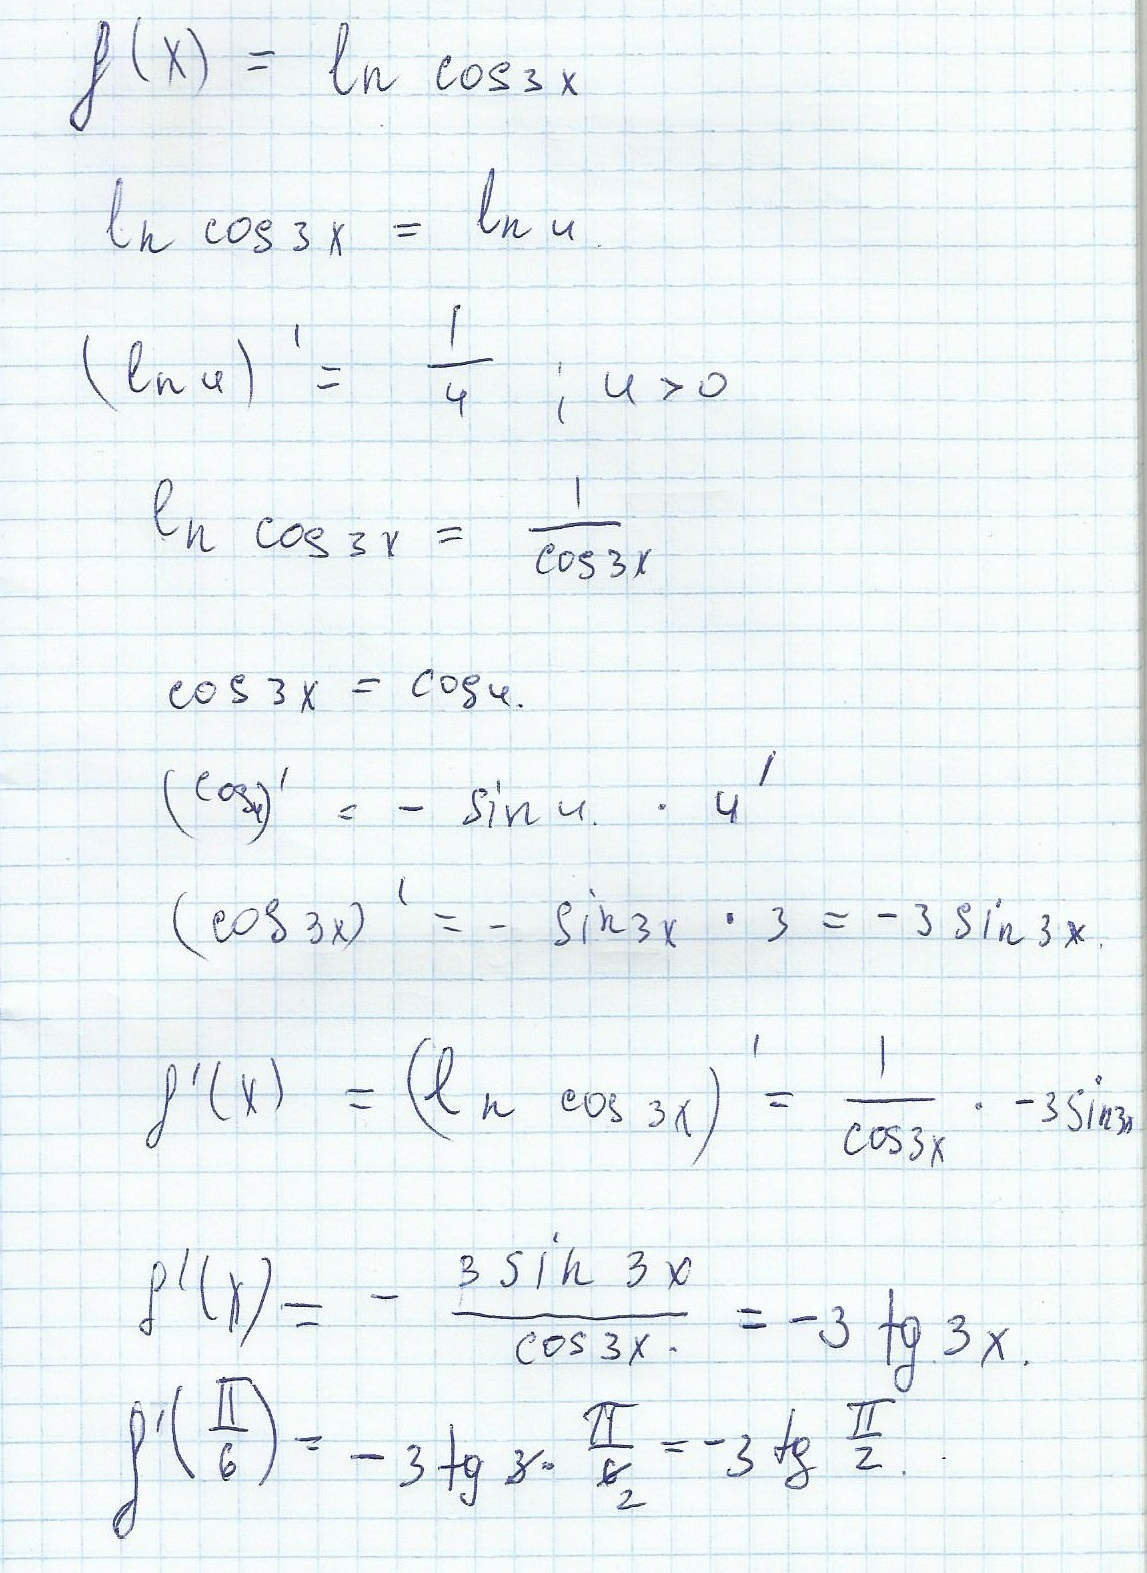 f(x) = ln cos3x
ln cos3x = ln u.
(ln u)' = 1/u ; u > 0
ln cos3x = 1/cos3x
cos3x = cosu.
(cosu)' = - sin u. · u'
(cos3x)' = - sin3x · 3 = -3 sin3x.
f'(x) = (ln cos3x)' = 1/cos3x · -3sin3x
f'(x) = - 3 sin 3x/cos3x. = -3 tg 3x.
f'(π/6) = -3 tg 3· π/6 2 = -3 tg π/2.